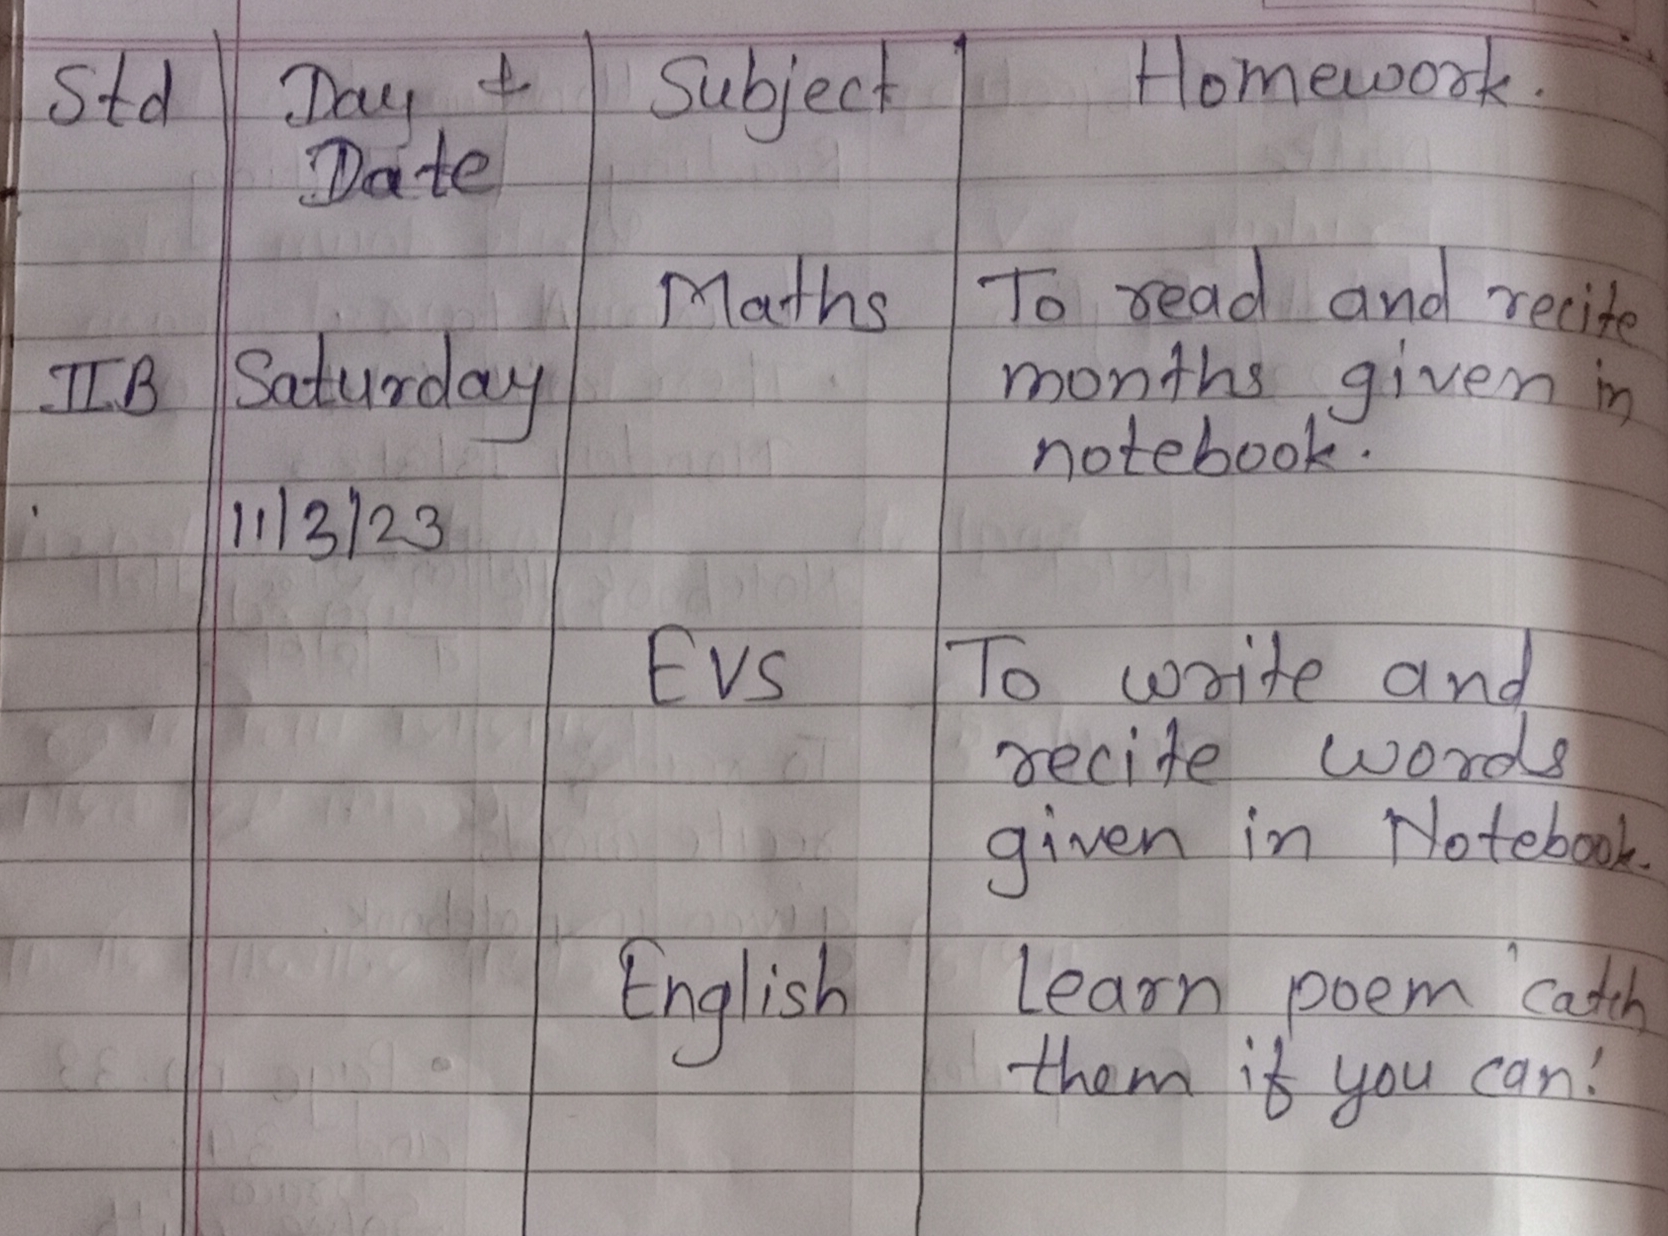 Std Day & Subject Homework.
Date
Maths To read and recite
IIB Saturday months given in
notebook.
11/3/23
EVS To write and
recite words
given in Notebook.
English Learn poem 'catch
them if you can'.